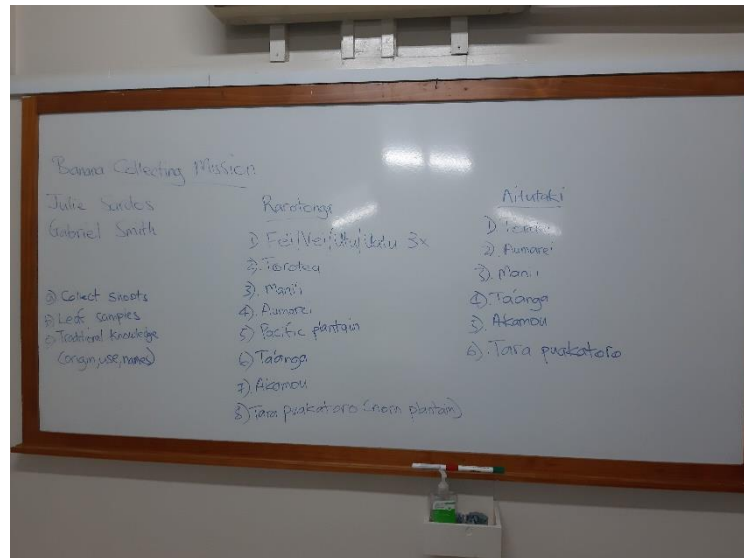 Banana Collecting Mission
Julie Sardos
Gabriel Smith
a) Collect shoots
b) Leaf samples
c) Traditional knowledge
(origin, use, names)
Rarotonga
1) Fei/Vei/Utu/Uatu 3x
2). Torotea
3). Manii
4). Aumarei
5) Pacific plantain
6) Ta'anga
7). Akamou
8) Tara puakatoro (horn plantain)
Aitutaki
1)
2). Aumarei
3). Manii
4). Ta'anga
5). Akamou
6). Tara puakatoro